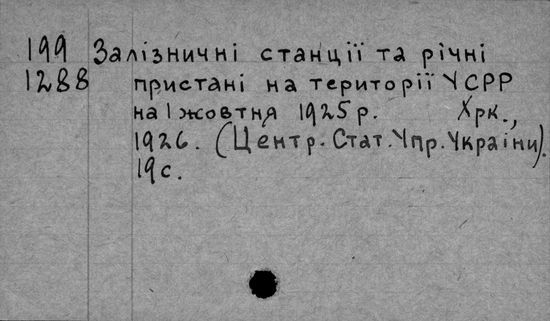 199 Залізничні станції та річні
1288 пристані на території УСРР
на 1 жовтня 1925 р. Хрк.,
1926. (Центр. Стат. Упр. України).
19 с.